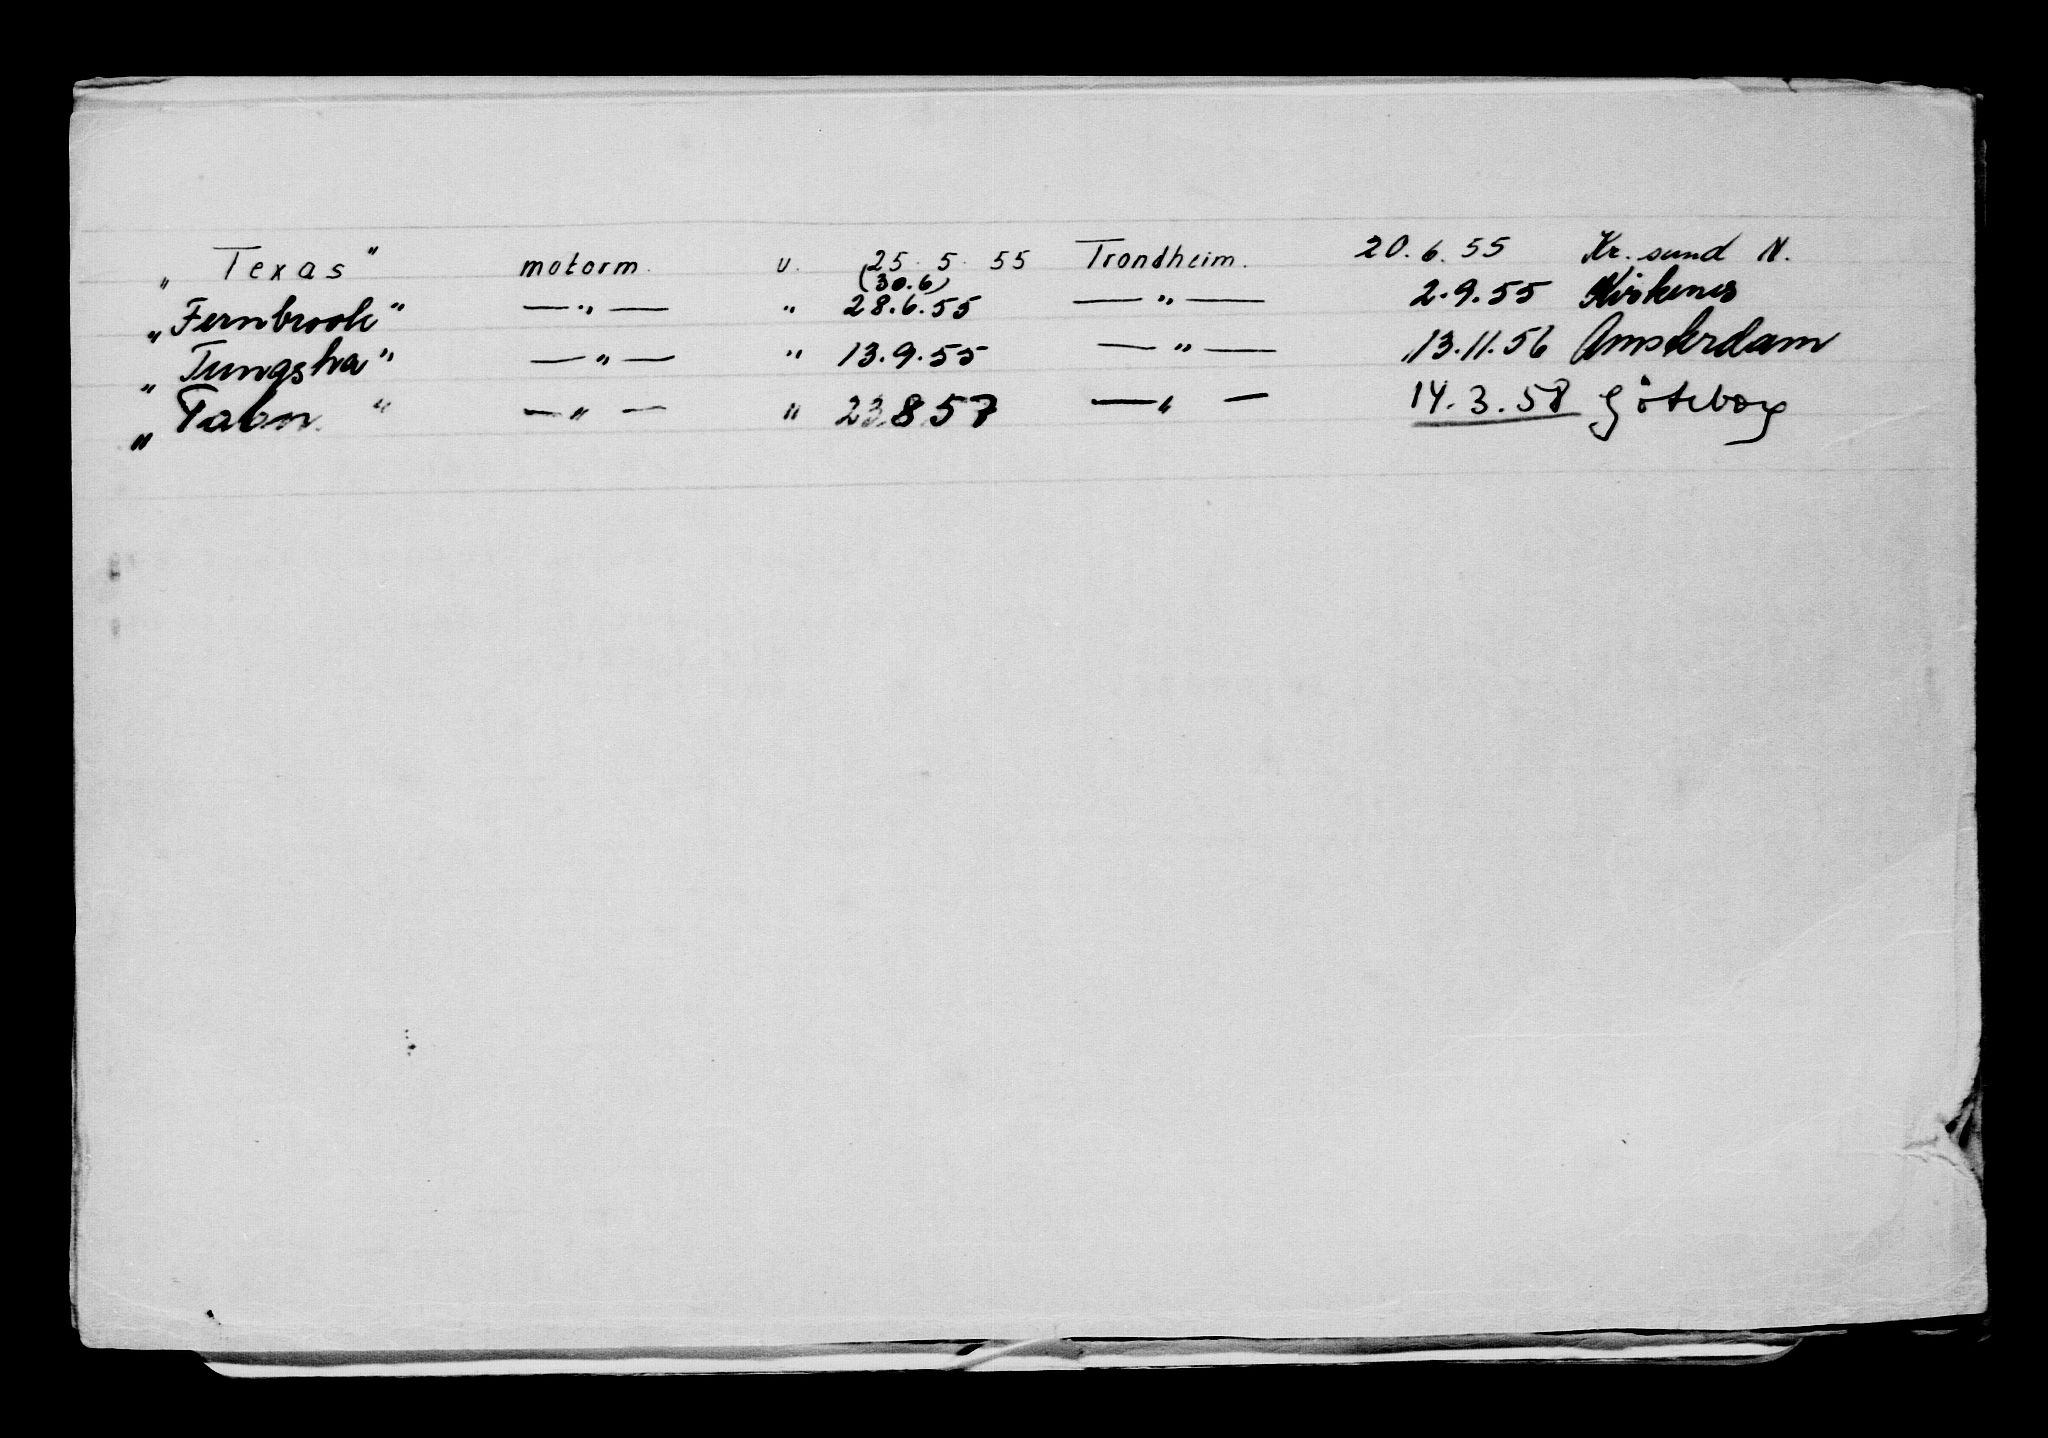 „ Texas " motorm. u. 25. 5. 55 Trondheim. 20.6.55 Kr. sund N.
(30.6)
„ Fernbrook " — " — " 28.6.55 — " — 2.9.55 Kirkenes
„ Tungsha " — " — " 13.9.55 — " — 13.11.56 Amsterdam
„ Tabor " — " — " 23.8.57 — " — 14.3.58 Göteborg